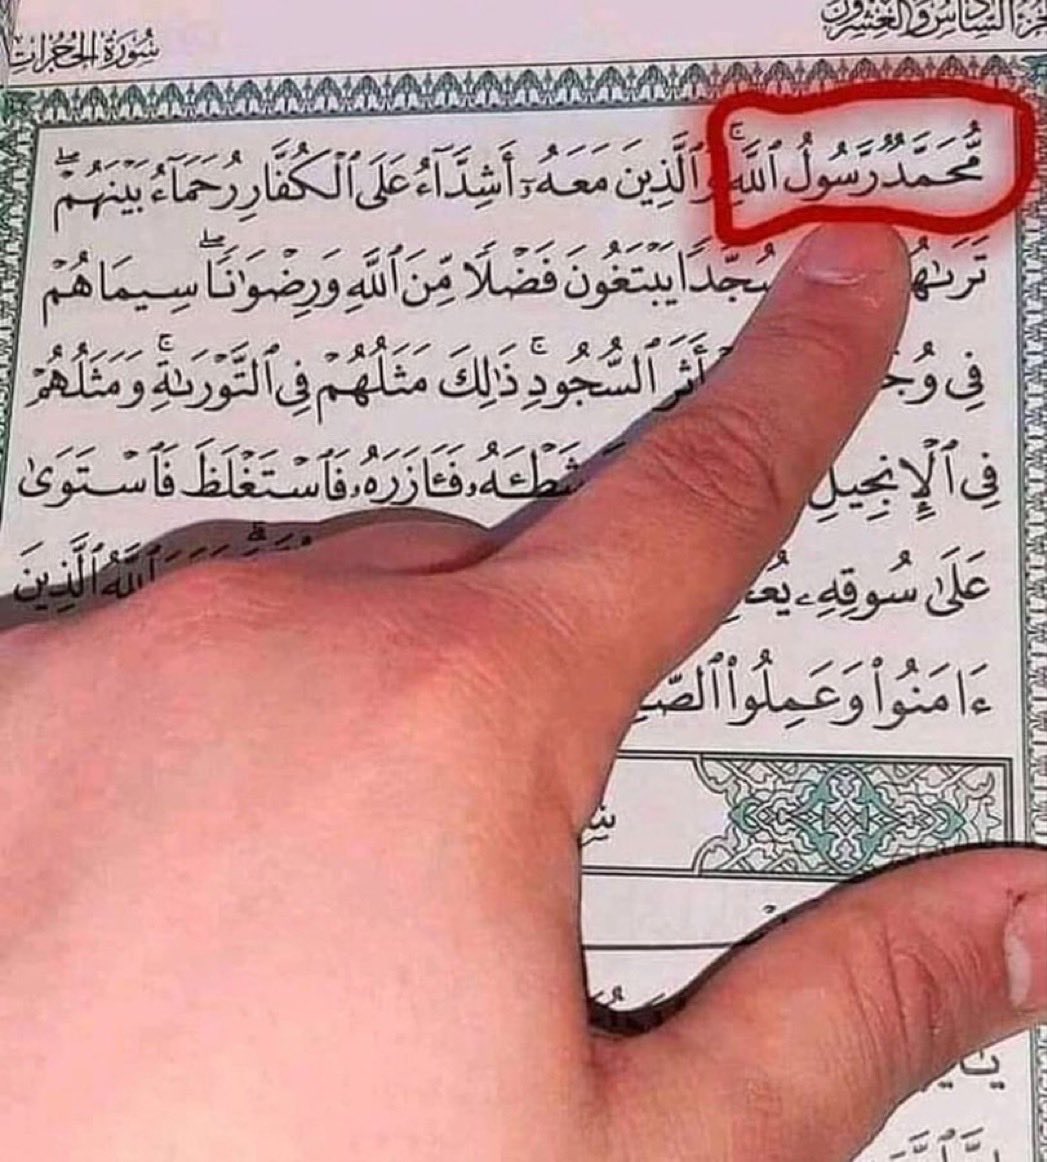 الجزء السادس والعشرون
سورة الحجرات
مُّحَمَّدٌ رَّسُولُ ٱللَّهِۚ وَٱلَّذِينَ مَعَهُۥٓ أَشِدَّآءُ عَلَى ٱلْكُفَّارِ رُحَمَآءُ بَيْنَهُمْۖ
تَرَىٰهُ سُجَّدًا يَبْتَغُونَ فَضْلًا مِّنَ ٱللَّهِ وَرِضْوَٰنًاۖ سِيمَاهُمْ
فِى أَثَرِ ٱلسُّجُودِۚ ذَٰلِكَ مَثَلُهُمْ فِى ٱلتَّوْرَىٰةِۚ وَمَثَلُهُمْ
فِى ٱلْإِنجِيلِ شَطْـَٔهُۥ فَـَٔازَرَهُۥ فَٱسْتَغْلَظَ فَٱسْتَوَىٰ
عَلَىٰ سُوقِهِۦ ٱللَّهُ ٱلَّذِينَ
ءَامَنُوا۟ وَعَمِلُوا۟